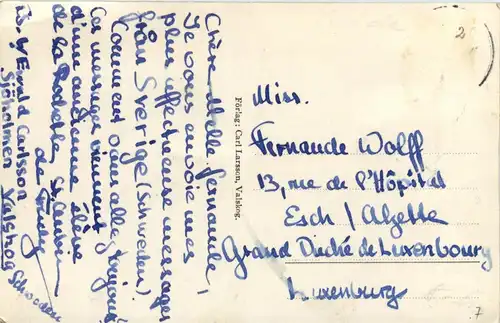 Chère Melle Fernande,
Je vous envoie mes
plus affectueuse messages
från Sverige (Schweden)
Comment allez toujours
Ces messages viennent
d'une ancienne élève
de la
de
B. f Ewald Carlsson
Sjöholmen Valskog
Schweden
Förlag: Carl Larsson, Valskog.
2
Miss.
Fernande Wolff
13, rue de l'Hôpital
Esch / Alzette
Grand Duché de Luxenboury
Luxenburg
7